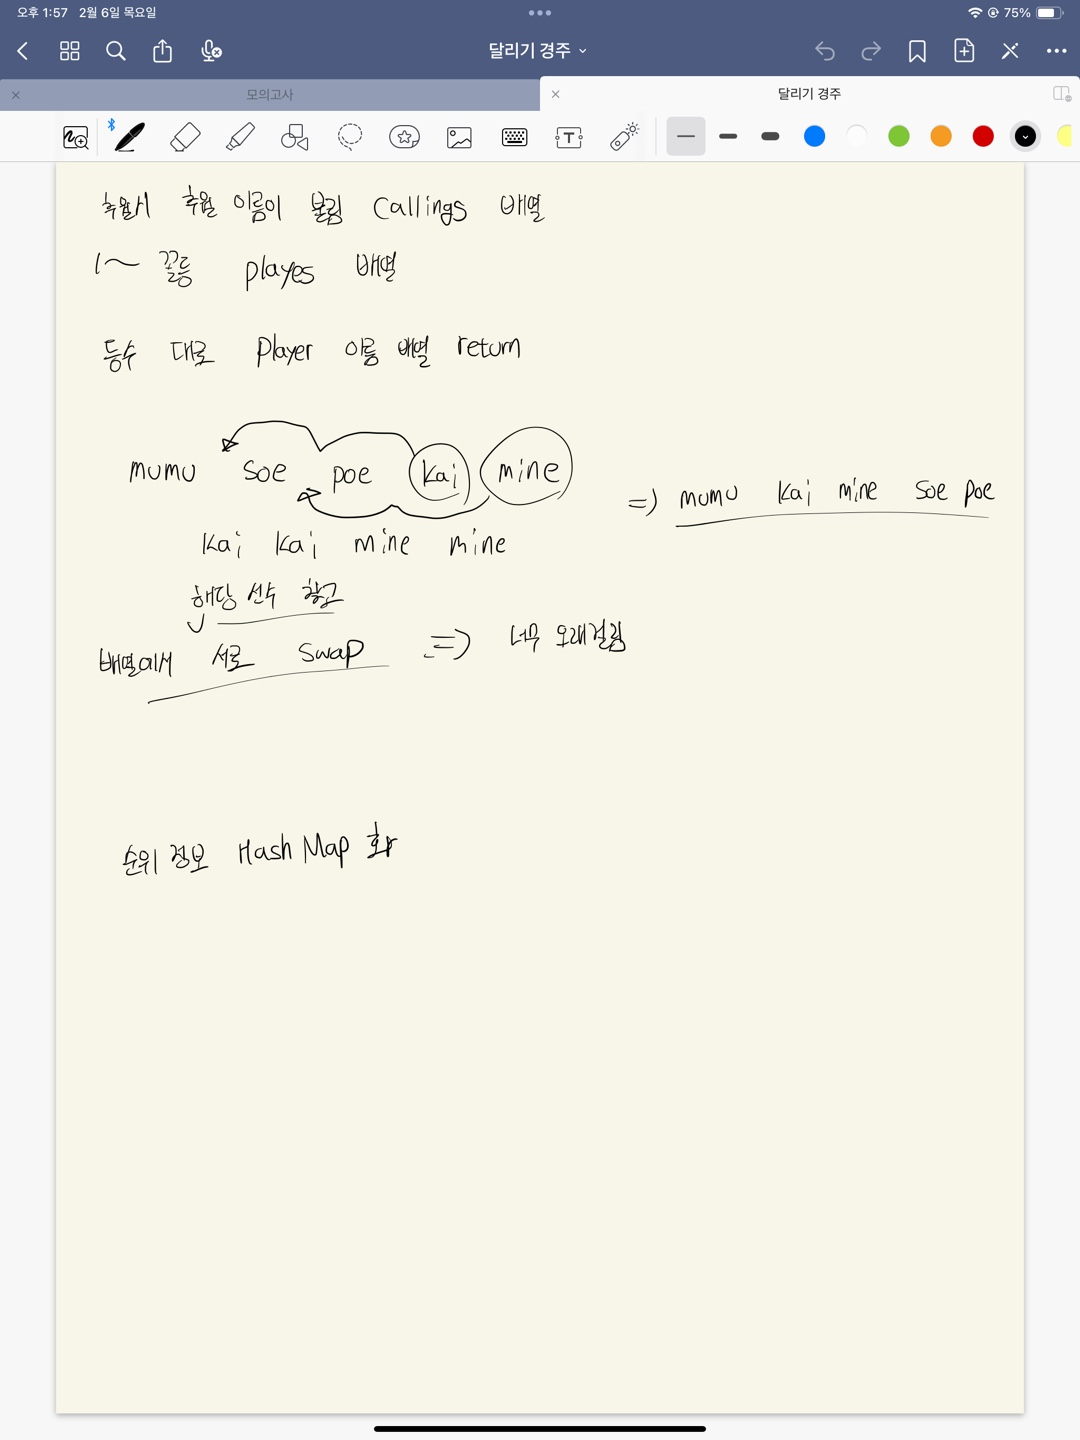 오후 1:57 2월 6일 목요일
75%
달리기 경주
모의고사
달리기 경주
추월시 추월 이름이 불림 Callings 배열
1~ 꼴등 playes 배열
등수 대로 Player 이름 배열 return
mumu Soe poe kai mine
=> mumu kai mine Soe poe
kai kai mine mine
해당 선수 찾고
배열에서 서로 swap => 너무 오래걸림
순위 정보 Hash Map 화